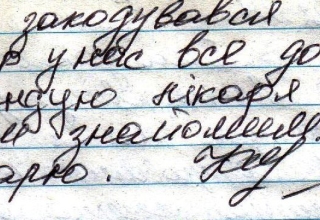 закодувався
у нас все до
ндую лікаря
и знайомим.
арно.